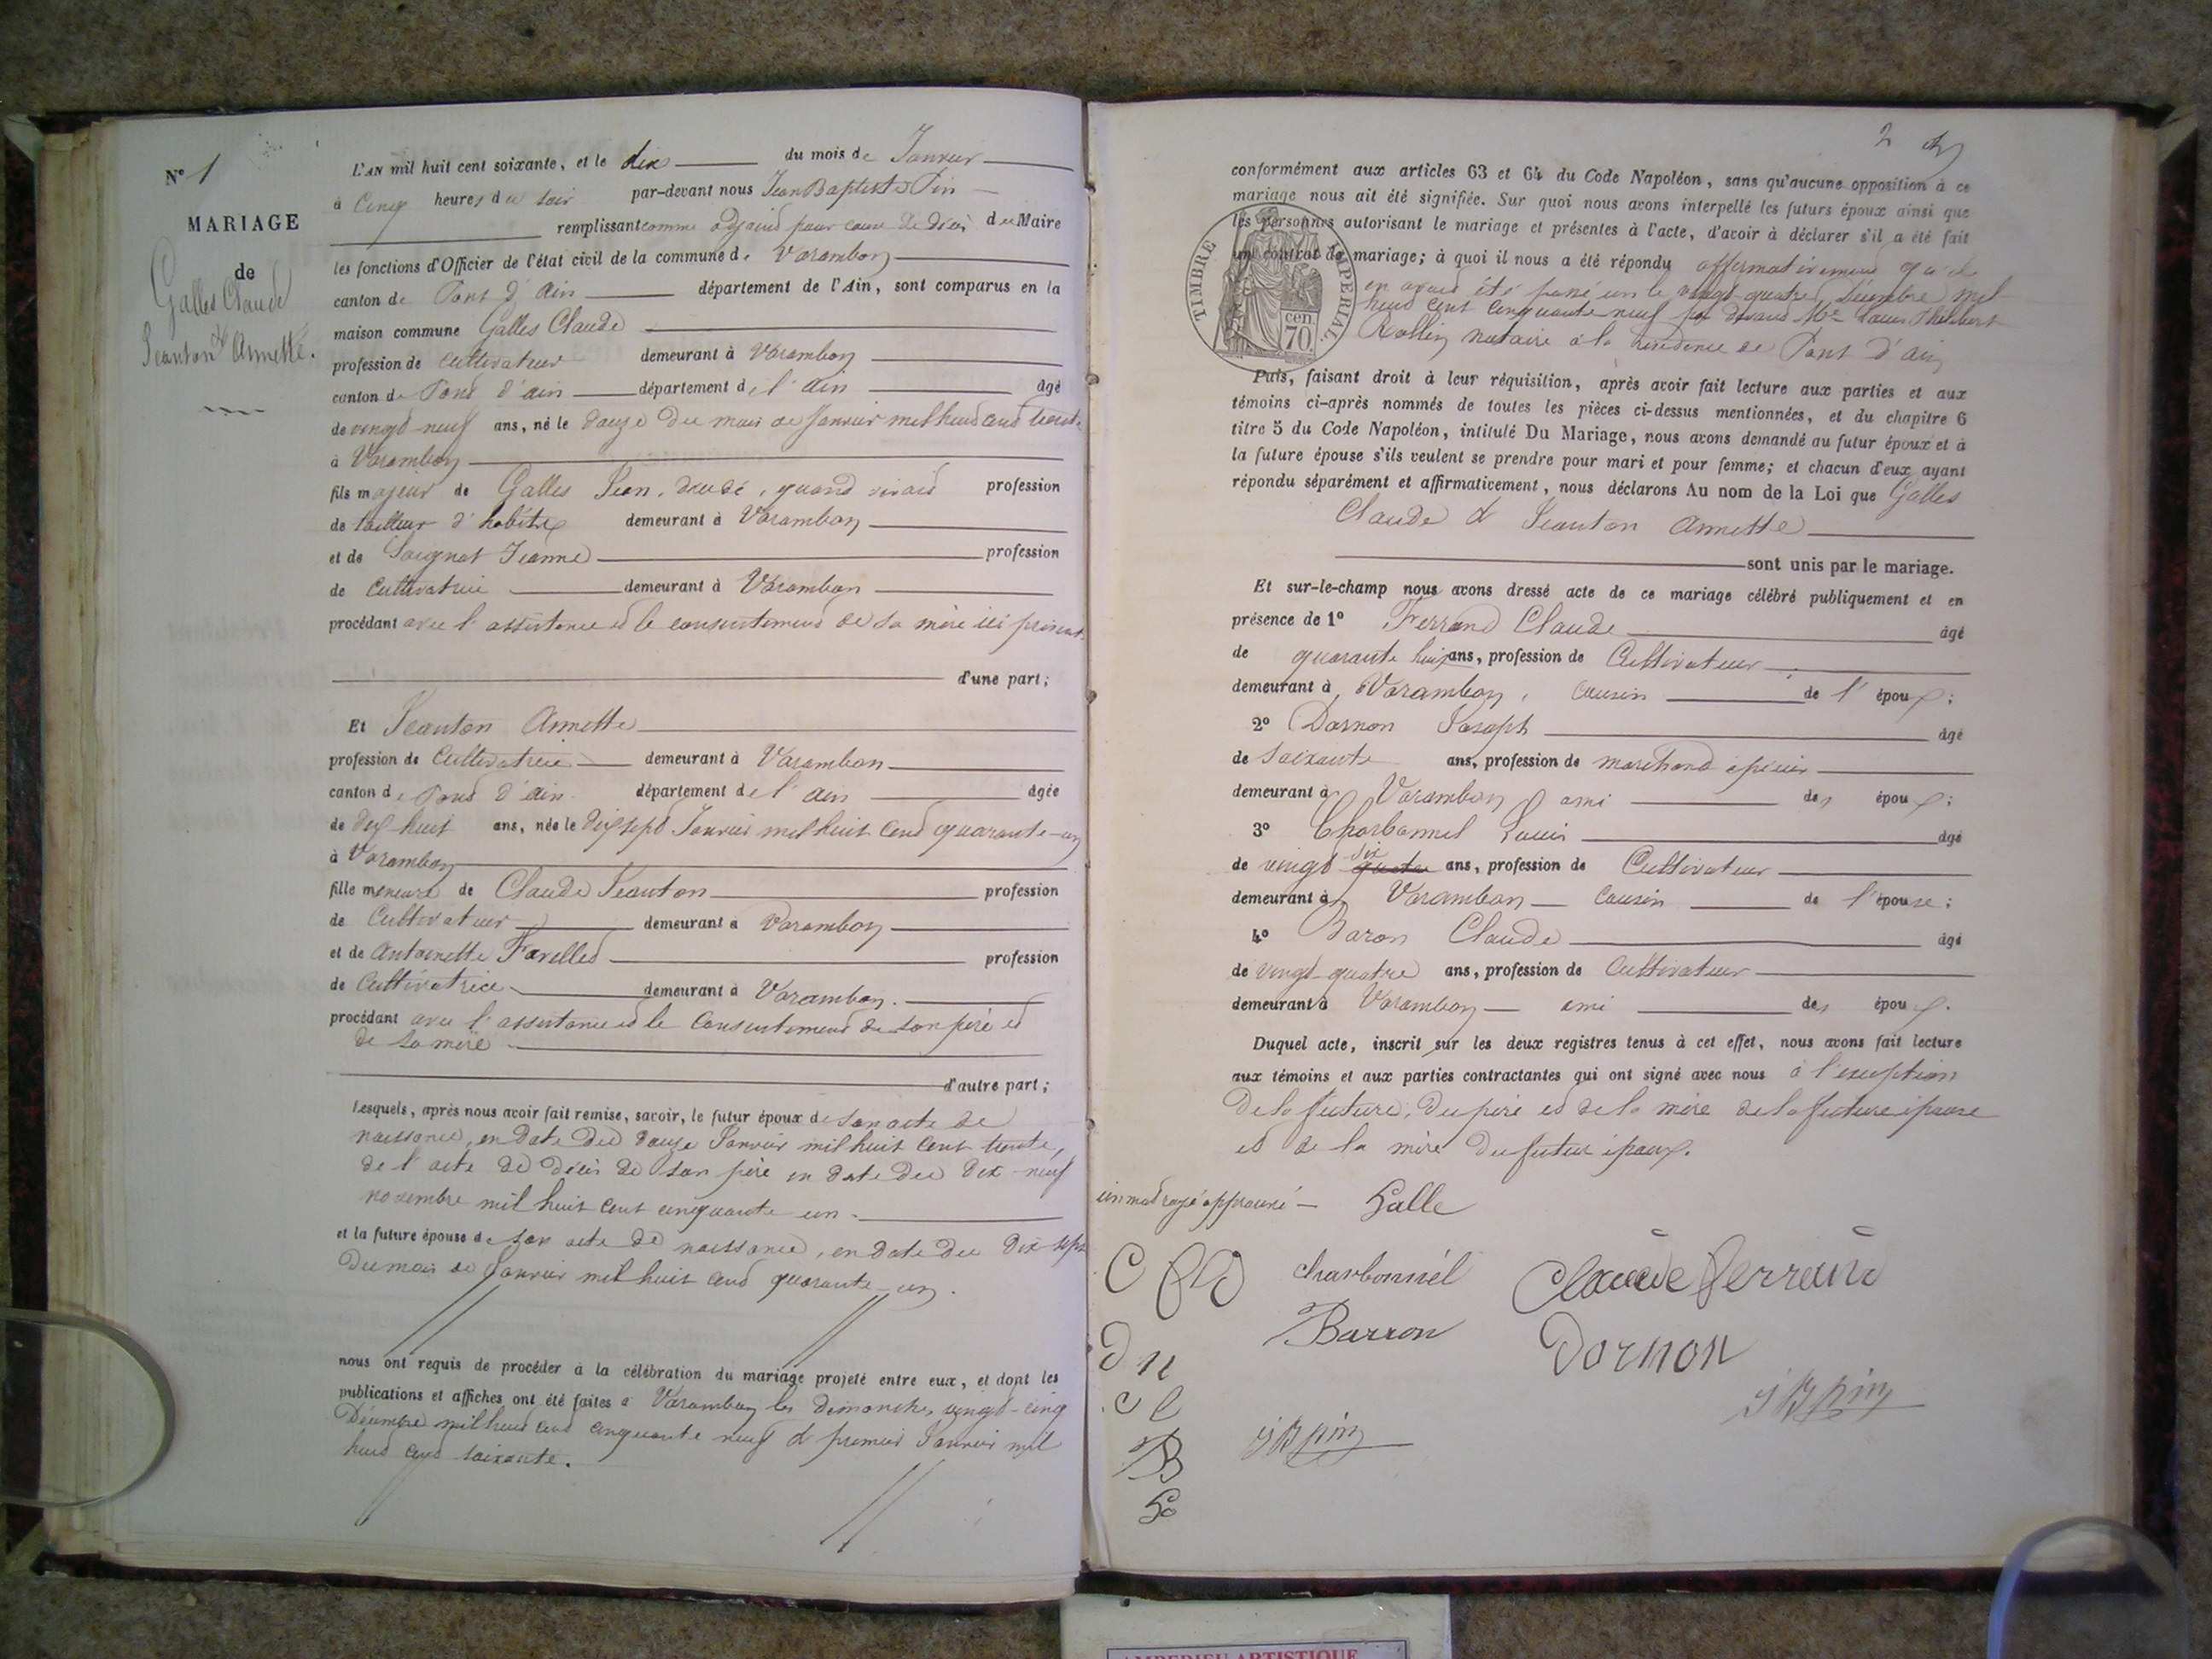 N° 1
MARIAGE
de
Galles Claude
&
Jeanton Annette.
L'AN mil huit cent soixante, et le dix du mois de Janvier
à Cinq heures du soir par-devant nous Jean Baptiste Pin
remplissant comme adjoint pour cause de décès du Maire
les fonctions d'Officier de l'état civil de la commune de Varambon
canton de Pont d'ain département de l'Ain, sont comparus en la
maison commune Galles Claude
profession de Cultivateur demeurant à Varambon
canton de Pont d'ain département de l'ain âgé
de vingt-neuf ans, né le douze du mois de Janvier mil huit cent trente
à Varambon
fils majeur de Galles Jean, décédé, quand vivait profession
de tailleur d'habits demeurant à Varambon
et de Soignat Jeanne profession
de Cultivatrice demeurant à Varambon
procédant avec l'assistance et le consentement de sa mère ici présente
d'une part;
Et Jeanton Annette
profession de Cultivatrice demeurant à Varambon
canton de Pont d'ain département de l'ain âgée
de dix huit ans, née le dix sept Janvier mil huit cent quarante-un
à Varambon
fille mineure de Claude Jeanton profession
de Cultivateur demeurant à Varambon
et de Antoinette Favelle profession
de Cultivatrice demeurant à Varambon.
procédant avec l'assistance et le Consentement de son père et
de sa mère
d'autre part;
Lesquels, après nous avoir fait remise, savoir, le futur époux de son acte de
naissance, en date du douze Janvier mil huit cent trente,
de l'acte de décès de son père en date du dix-neuf
novembre mil huit cent cinquante un.
et la future épouse de son acte de naissance, en date du dix-sept
du mois de Janvier mil huit cent quarante-un.
nous ont requis de procéder à la célébration du mariage projeté entre eux, et dont les
publications et affiches ont été faites à Varambon les dimanches, vingt-cinq
Décembre mil huit cent cinquante neuf & premier Janvier mil
huit cent soixante.
2
conformément aux articles 63 et 64 du Code Napoléon, sans qu'aucune opposition à ce
mariage nous ait été signifiée. Sur quoi nous avons interpellé les futurs époux ainsi que
les personnes autorisant le mariage et présentes à l'acte, d'avoir à déclarer s'il a été fait
un contrat de mariage; à quoi il nous a été répondu affirmativement qu'il
en avait été passé un le vingt-quatre Décembre mil
huit cent cinquante neuf par devant Me Louis Philibert
Rollin notaire à la résidence de Pont d'ain
TIMBRE IMPERIAL
cen
70
Puis, faisant droit à leur réquisition, après avoir fait lecture aux parties et aux
témoins ci-après nommés de toutes les pièces ci-dessus mentionnées, et du chapitre 6
titre 5 du Code Napoléon, intitulé Du Mariage, nous avons demandé au futur époux et à
la future épouse s'ils veulent se prendre pour mari et pour femme; et chacun d'eux ayant
répondu séparément et affirmativement, nous déclarons Au nom de la Loi que Galles
Claude & Jeanton Annette
sont unis par le mariage.
Et sur-le-champ nous avons dressé acte de ce mariage célébré publiquement et en
présence de 1° Ferrand Claude âgé
de quarante huit ans, profession de Cultivateur
demeurant à Varambon, cousin de l'époux;
2° Dornon Joseph âgé
de soixante ans, profession de marchand épicier
demeurant à Varambon ami des époux;
3° Charbonnel Louis âgé
de vingt six quatre ans, profession de Cultivateur
demeurant à Varambon Cousin de l'épouse;
4° Baron Claude âgé
de vingt-quatre ans, profession de Cultivateur
demeurant à Varambon ami des époux.
Duquel acte, inscrit sur les deux registres tenus à cet effet, nous avons fait lecture
aux témoins et aux parties contractantes qui ont signé avec nous à l'exception
De la future, du père et de la mère de la future épouse
et de la mère du futur époux.
un mot rayé approuvé
Galle
Charbonnel
Claude ferrand
Barron
Dornon
J B pin
J B pin
AMBERIEU ARTISTIQUE